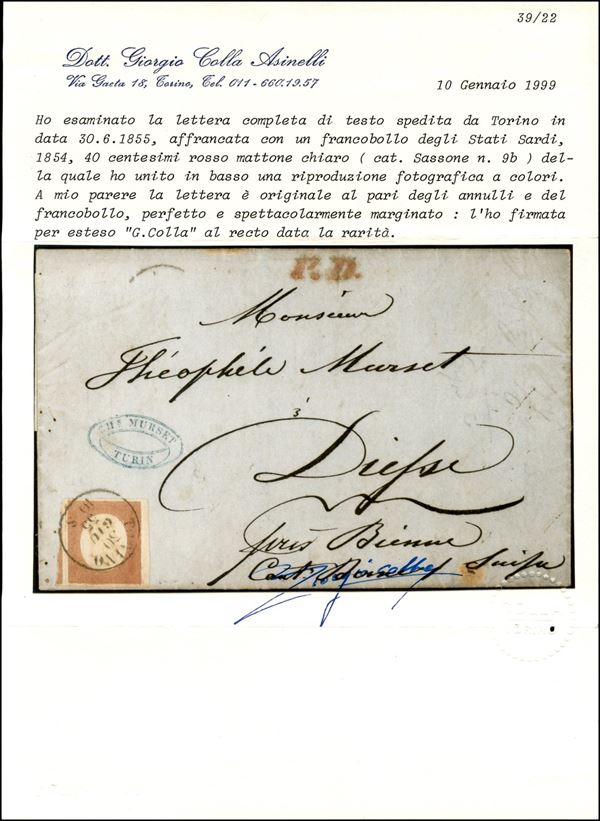 39/22
Dott. Giorgio Colla Asinelli
Via Gaeta 18, Torino, Tel. 011-660.19.57
10 Gennaio 1999
Ho esaminato la lettera completa di testo spedita da Torino in
data 30.6.1855, affrancata con un francobollo degli Stati Sardi,
1854, 40 centesimi rosso mattone chiaro ( cat. Sassone n. 9b ) del-
la quale ho unito in basso una riproduzione fotografica a colori.
A mio parere la lettera è originale al pari degli annulli e del
francobollo, perfetto e spettacolarmente marginato : l'ho firmata
per esteso "G.Colla" al recto data la rarità.
P.D.
Monsieur
Théophile Murset
CHS MURSET
TURIN
Diesse
TORINO
30
GIU
55
près Bienne
Cant. Suisse